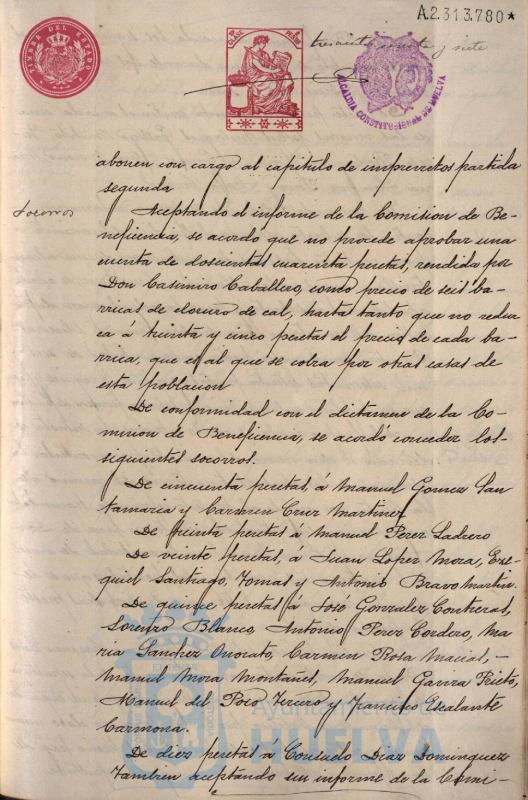 A.2.313.780*
TIMBRE DEL ESTADO
trescientos siete y siete
ALCALDIA CONSTITUCIONAL DE HUELVA
abonen con cargo al capitulo de imprevistos partida
segunda
Socorros
Aceptando el informe de la Comision de Be-
neficencia, se acordo que no procede aprobar una
cuenta de doscientas cuarenta pesetas, rendida por
Don Casimiro Caballero, como precio de seis ba-
rricas de cloruro de cal, hasta tanto que no reduz
ca á treinta y cinco pesetas el precio de cada ba-
rrica, que es al que se cobra por otras casas de
esta poblacion
De conformidad con el dictamen de la Co-
mision de Beneficencia, se acordó conceder los
siguientes socorros.
De cincuenta pesetas, á Manuel Gomez San-
tamaria y Carmen Cruz Martinez
De treinta pesetas á Manuel Perez Ladrero
De veinte pesetas, á Juan Lopez Mora, Eze-
quiel Santiago, Tomas y Antonio Bravo Martin.
De quince pesetas á José Gonzalez Contreras,
Lorenzo Blanco, Antonio Perez Cordero, Ma
ria Sanchez Onorato, Carmen Rosa Macias, -
Manuel Mora Montañes, Manuel Gavira Prieto,
Manuel del Pozo Tercero y Francisco Escalante
Carmona.
De diez pesetas á Consuelo Diaz Dominguez
Tambien aceptando un informe de la Comi-
Ayuntamiento de
HUELVA